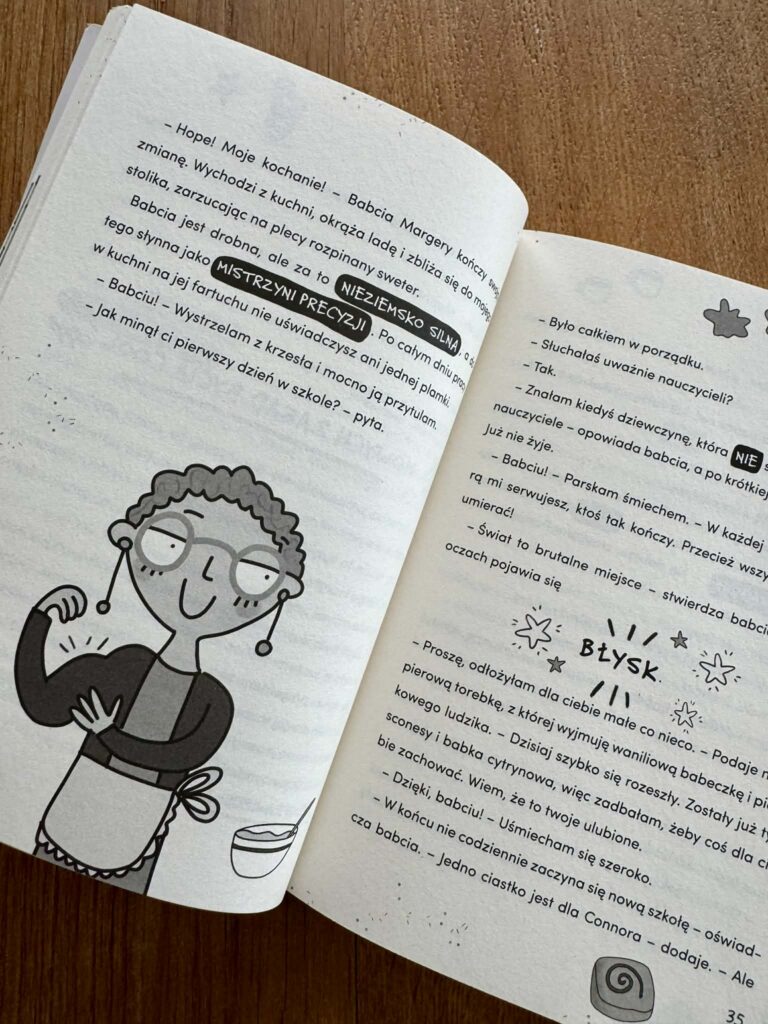 – Hope! Moje kochanie! – Babcia Margery kończy
zmianę. Wychodzi z kuchni, okrąża ladę i zbliża się do mojego
stolika, zarzucając na plecy rozpinany sweter.
Babcia jest drobna, ale za to NIEZIEMSKO SILNA, a do
tego słynna jako MISTRZYNI PRECYZJI. Po całym dniu
w kuchni na jej fartuchu nie uświadczysz ani jednej plamki.
– Babciu! – Wystrzelam z krzesła i mocno ją przytulam.
– Jak minął ci pierwszy dzień w szkole? – pyta.
– Było całkiem w porządku.
– Słuchałaś uważnie nauczycieli?
– Tak.
– Znałam kiedyś dziewczynę, która NIE
nauczyciele – opowiada babcia, a po krótkiej
Już nie żyje.
– Babciu! – Parskam śmiechem. – W każdej
rą mi serwujesz, ktoś tak kończy. Przecież
umierać!
– Świat to brutalne miejsce – stwierdza babcia
oczach pojawia się
BŁYSK.
– Proszę, odłożyłam dla ciebie małe co nieco. – Podaje
pierową torebkę, z której wyjmuję waniliową babeczkę i
kowego ludzika. – Dzisiaj szybko się rozeszły. Zostały już
sconesy i babka cytrynowa, więc zadbałam, żeby coś dla
bie zachować. Wiem, że to twoje ulubione.
– Dzięki, babciu! – Uśmiecham się szeroko.
– W końcu nie codziennie zaczyna się nową szkołę – oświad-
cza babcia. – Jedno ciastko jest dla Connora – dodaje. – Ale
35